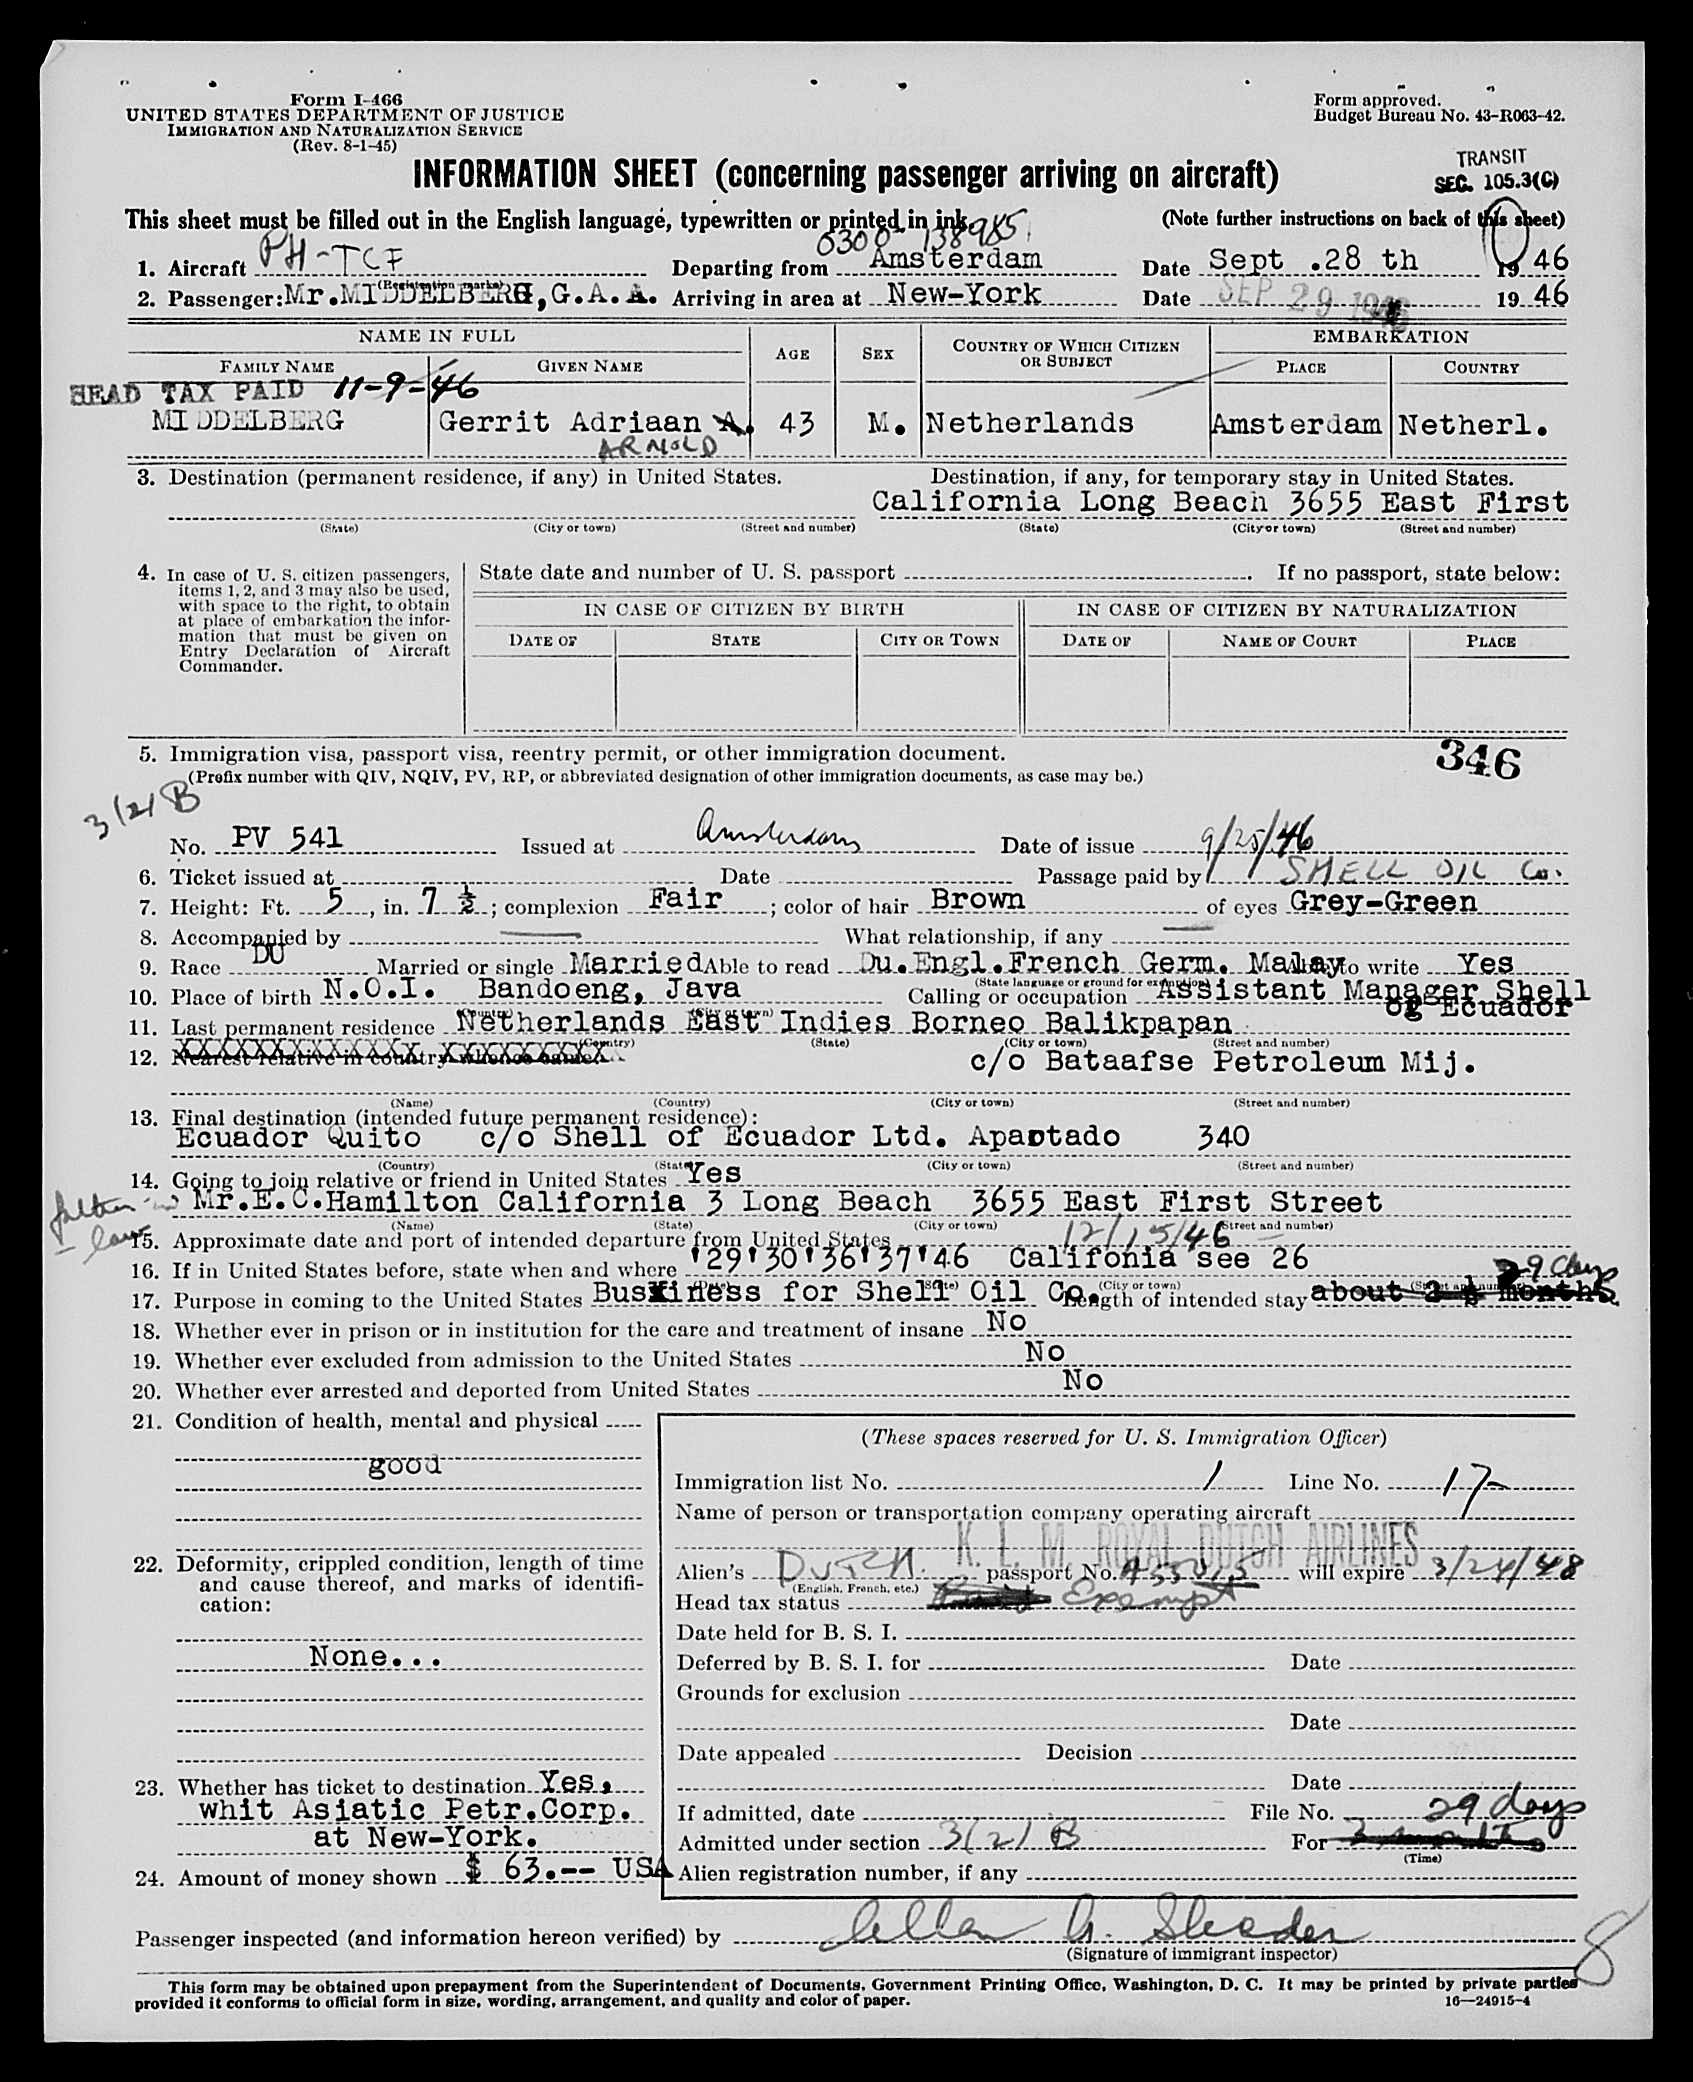 Form I-466
UNITED STATES DEPARTMENT OF JUSTICE
IMMIGRATION AND NATURALIZATION SERVICE
(Rev. 8-1-45)
Form approved.
Budget Bureau No. 43-R063-42.
INFORMATION SHEET (concerning passenger arriving on aircraft)
TRANSIT
SEC. 105.3(C)
This sheet must be filled out in the English language, typewritten or printed in ink.
(Note further instructions on back of this sheet)
0300 138985
1. Aircraft PH-TCF Departing from Amsterdam Date Sept .28 th 1946
(Registration marks)
2. Passenger: Mr.MIDDELBERG,G.A.A. Arriving in area at New-York Date SEP 29 1946 1946
NAME IN FULL AGE SEX COUNTRY OF WHICH CITIZEN OR SUBJECT EMBARKATION
FAMILY NAME GIVEN NAME PLACE COUNTRY
HEAD TAX PAID 11-9-46
MIDDELBERG Gerrit Adriaan A. 43 M. Netherlands Amsterdam Netherl.
ARNOLD
3. Destination (permanent residence, if any) in United States. Destination, if any, for temporary stay in United States.
California Long Beach 3655 East First
(State) (City or town) (Street and number) (State) (City or town) (Street and number)
4. In case of U. S. citizen passengers, items 1, 2, and 3 may also be used, with space to the right, to obtain at place of embarkation the information that must be given on Entry Declaration of Aircraft Commander.
State date and number of U. S. passport . If no passport, state below:
IN CASE OF CITIZEN BY BIRTH IN CASE OF CITIZEN BY NATURALIZATION
DATE OF STATE CITY OR TOWN DATE OF NAME OF COURT PLACE
5. Immigration visa, passport visa, reentry permit, or other immigration document.
346
(Prefix number with QIV, NQIV, PV, RP, or abbreviated designation of other immigration documents, as case may be.)
3(2) B
No. PV 541 Issued at Amsterdam Date of issue 9/25/46
6. Ticket issued at Date Passage paid by SHELL OIL Co.
7. Height: Ft. 5, in. 7 ½; complexion Fair; color of hair Brown of eyes Grey-Green
8. Accompanied by — What relationship, if any —
9. Race DU Married or single Married Able to read Du.Engl.French Germ. Malay Able to write Yes
(State language or ground for exemption)
10. Place of birth N.O.I. Bandoeng, Java Calling or occupation Assistant Manager Shell
(Country) (City or town)
of Ecuador
11. Last permanent residence Netherlands East Indies Borneo Balikpapan
(Country) (State) (City or town) (Street and number)
12. Nearest relative in country whence came.
c/o Bataafse Petroleum Mij.
(Name) (Country) (City or town) (Street and number)
13. Final destination (intended future permanent residence):
Ecuador Quito c/o Shell of Ecuador Ltd. Apartado 340
(Country) (State) (City or town) (Street and number)
14. Going to join relative or friend in United States Yes
father in law
Mr.E.C.Hamilton California 3 Long Beach 3655 East First Street
(Name) (State) (City or town) (Street and number)
15. Approximate date and port of intended departure from United States 12/15/46
16. If in United States before, state when and where '29'30'36'37'46 Califonia see 26
(Date) (State) (City or town) (Street and number)
29 days
17. Purpose in coming to the United States Business for Shell Oil Co. Length of intended stay about 2 ½ months
18. Whether ever in prison or in institution for the care and treatment of insane No
19. Whether ever excluded from admission to the United States No
20. Whether ever arrested and deported from United States No
21. Condition of health, mental and physical
good
22. Deformity, crippled condition, length of time and cause thereof, and marks of identification:
None...
23. Whether has ticket to destination Yes,
whit Asiatic Petr.Corp.
at New-York.
24. Amount of money shown $ 63.-- USA
(These spaces reserved for U. S. Immigration Officer)
Immigration list No. 1 Line No. 17
Name of person or transportation company operating aircraft
K. L. M. ROYAL DUTCH AIRLINES
Alien's DUTCH passport No. A55015 will expire 3/24/48
(English, French, etc.)
Head tax status Exempt
Date held for B. S. I.
Deferred by B. S. I. for Date
Grounds for exclusion
Date
Date appealed Decision
Date
If admitted, date File No.
29 days
Admitted under section 3(2) B For
(Time)
Alien registration number, if any
Passenger inspected (and information hereon verified) by
(Signature of immigrant inspector)
8
This form may be obtained upon prepayment from the Superintendent of Documents, Government Printing Office, Washington, D. C. It may be printed by private parties
provided it conforms to official form in size, wording, arrangement, and quality and color of paper.
16—24915-4